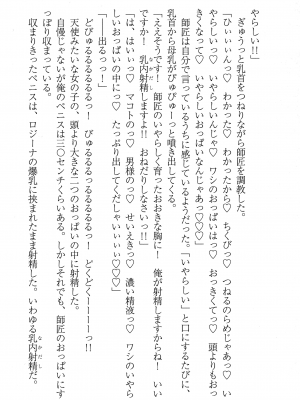 やらしい!!」
　ぎゅうっと乳首をつねりながら師匠を調教した。
「ひぃぃぃん♡　わかった♡　わかったから♡　ちくびっ♡　つねるのらめじゃぁっ♡　い
やらしいっ♡　いやらしいんじゃ♡　ワシのおっぱいはっ♡　おっきくてっ♡　頭よりもおっ
きくなって♡　いやらしいおっぱいなんじゃあっ♡♡♡」
　師匠は自分で言っているうちに感じているようだった。「いやらしい」と口にするたびに、
乳首から母乳がぴゅぴゅーっと噴き出してくる。
「ええそうです！　師匠のいやらしく育ったおおきな胸に！　俺が射精しますからね！　いい
ですか！　乳内射精しますよ!!　おねだりしなさいっ!!」
「は、はいぃっ♡　マコトの♡　男様のっ♡　せいえきっ♡　濃い精液っ♡　ワシのいやら
しいおっぱいの中にっ♡　たっぷり出してくだしゃいぃぃぃ♡♡」
「――出るっっ！」
　どびゅるるるるるっ！　びゅるるるっっるるるるっ！　どくどくーーーーっ!!
　天使みたいな女の子の、頭より大きな二つのおっぱいの中に射精した。
　自慢じゃないが俺のペニスは三〇センチくらいある。しかしそれでも、師匠のおっぱいにす
っぽり収まっている。
　収まりきったペニスは、ロジーナの爆乳に挟まれたまま射精した。いわゆる乳内射精だ。
なかだし